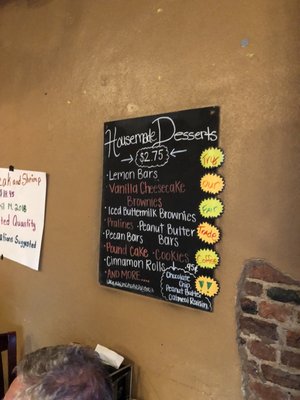 Housemade Desserts
$2.75
Lemon Bars
Vanilla Cheesecake
Brownies
Iced Buttermilk Brownies
Pralines · Peanut Butter
Pecan Bars Bars
Pound Cake · Cookies 95¢
Cinnamon Rolls
AND MORE....
Chocolate
Chip
Peanut Butter
Oatmeal Raisin
Try
our
Fair
Trade
Coffee
and Shrimp
2018
Quantity
Suggested